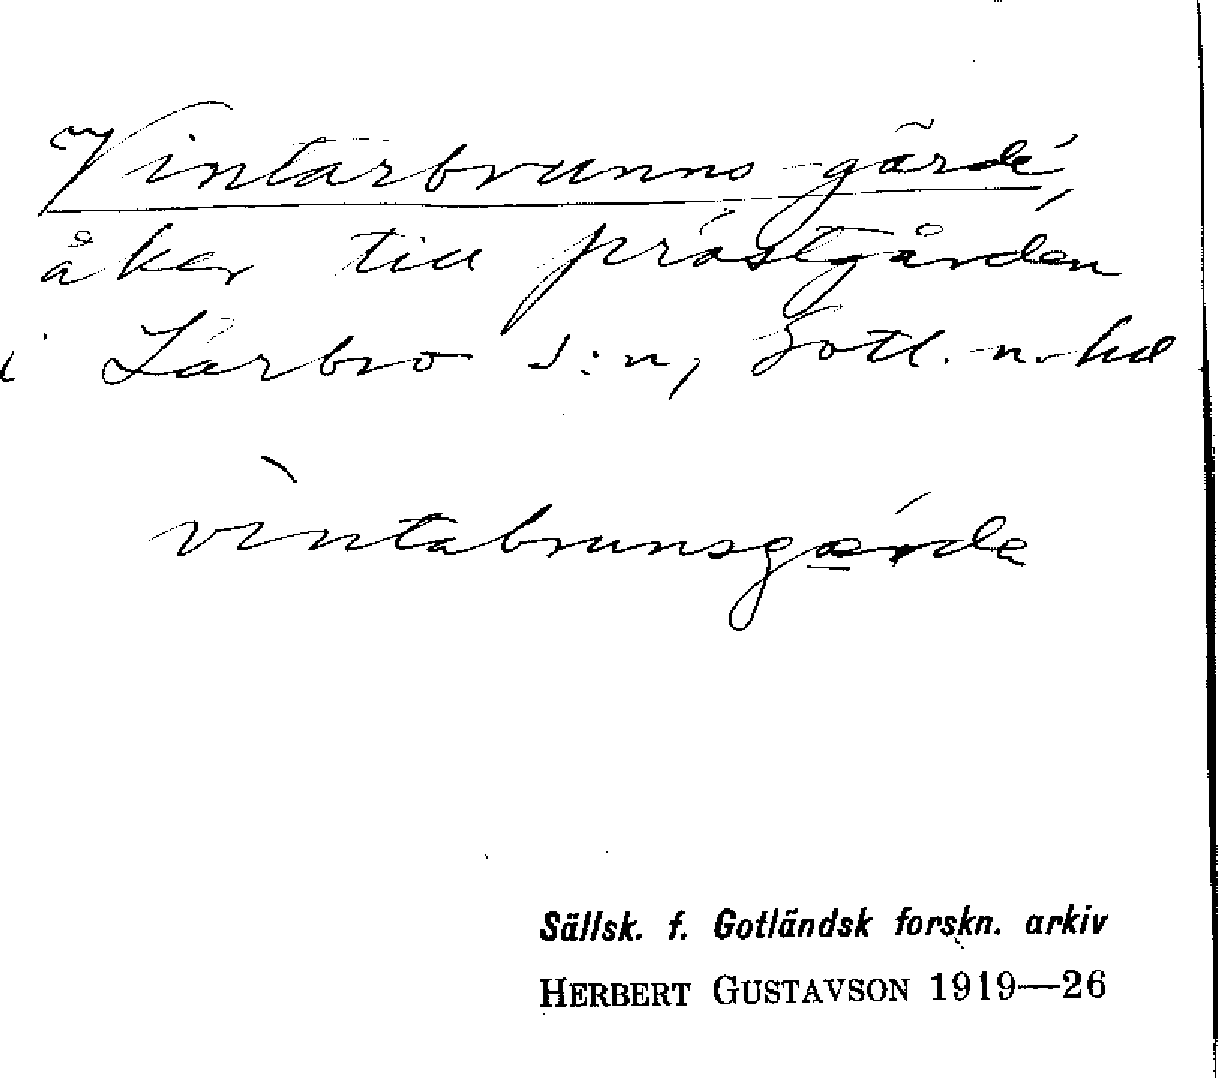 Vintarbrunns-gärde,
åker till prästgården
i Lärbro s:n, Gotl. n. hd
vintabrunsgærda
Sällsk. f. Gotländsk forskn. arkiv
HERBERT GUSTAVSON 1919—26